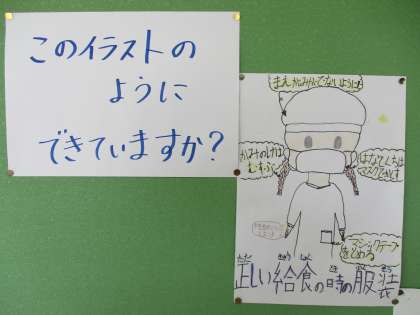 このイラストの
ように
できていますか?
まえがみがでないように!
かみのけは
むすぶ
はなとくちは
マスクでかくす
マジックテープ
をとめる
正しい給食の時の服装